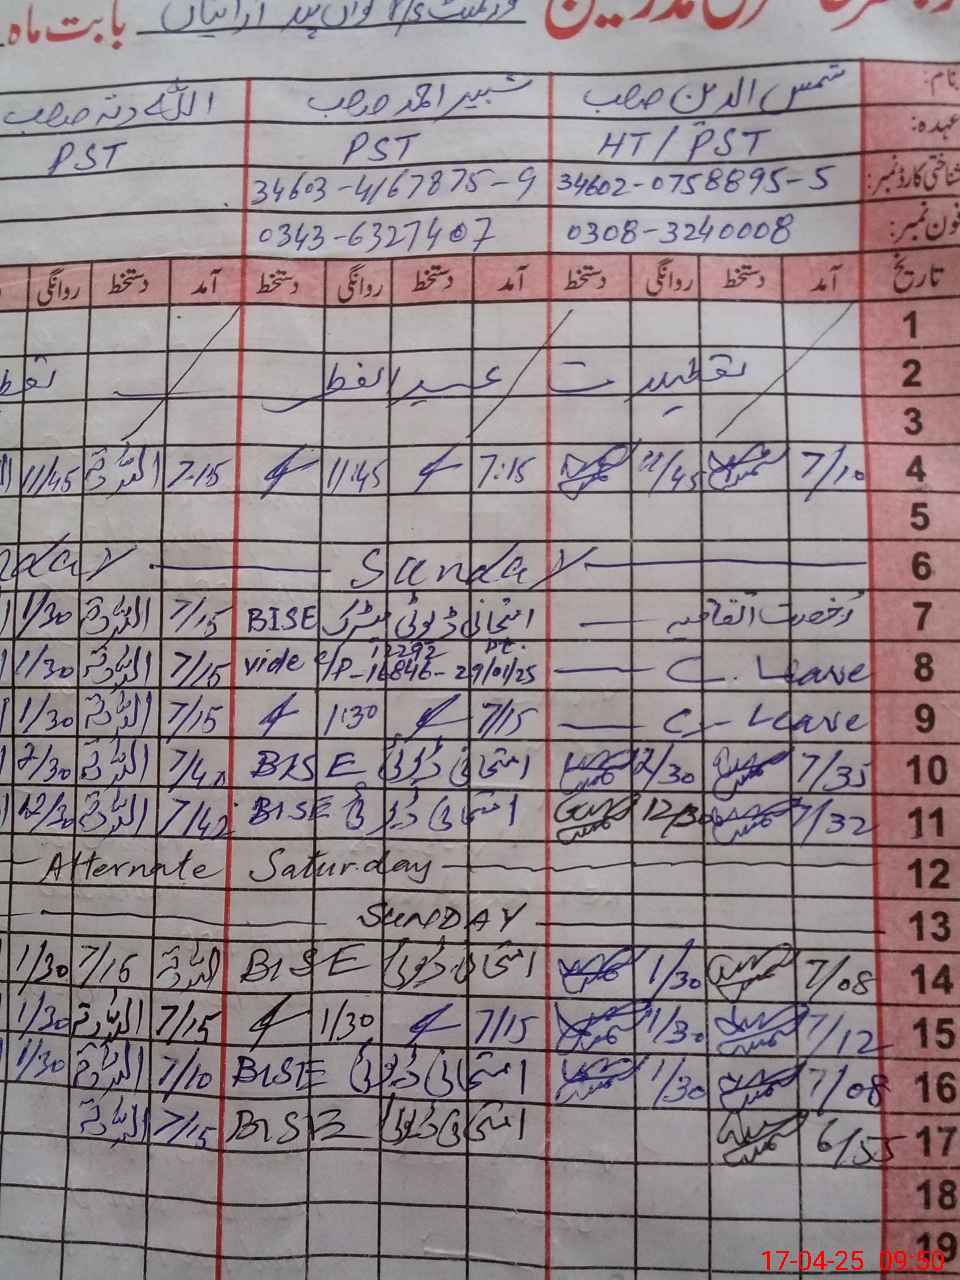 بابت ماہ
نام: شمس الدین صاحب شبیر احمد صاحب اللہ دتہ صاحب
عہدہ: HT / PST PST PST
شناختی کارڈ نمبر: 34602-0758895-5 34603-4167875-9
فون نمبر: 0308-3240008 0343-6327407
تاریخ آمد دستخط روانگی دستخط آمد دستخط روانگی دستخط آمد دستخط روانگی
1
2 تعطیلات عید الفطر
3
4 7/10 11/45 7:15 11:45 7:15 11/45
5
6 Sunday
7 رخصت اتفاقیہ امتحانی ڈیوٹی میٹرک BISE 7/15 1/30
8 C. Leave vide 12292 Dt. 29/01/25 7/15 1/30
9 C. Leave 7/15 1:30 7/15 1/30
10 7/35 12/30 امتحانی ڈیوٹی BISE
11 7/32 12/30 امتحانی ڈیوٹی BISE 7/42 12/30
12 Alternate Saturday
13 SUNDAY
14 7/08 1/30 امتحانی ڈیوٹی BISE 7/16 1/30
15 7/12 1/30 7/15 1/30 7/15 1/30
16 7/08 1/30 امتحانی ڈیوٹی BISE 7/10 1/30
17 6/55 امتحانی ڈیوٹی BISE 7/15
18
19
17-04-25 09:50